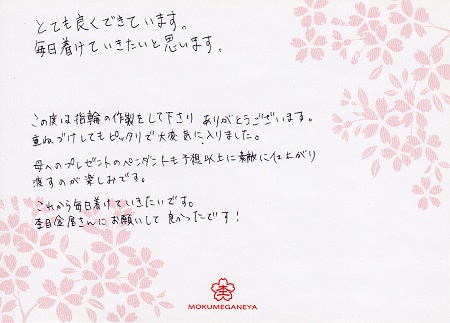 とても良くできています。
毎日着けていきたいと思います。
この度は指輪の作製をして下さり ありがとうございます。
重ねづけしてもピッタリで大変気に入りました。
母へのプレゼントのペンダントも予想以上に素敵に仕上がり
渡すのが楽しみです。
これから毎日着けていきたいです。
杢目金屋さんにお願いして良かったです!
杢
MOKUMEGANEYA